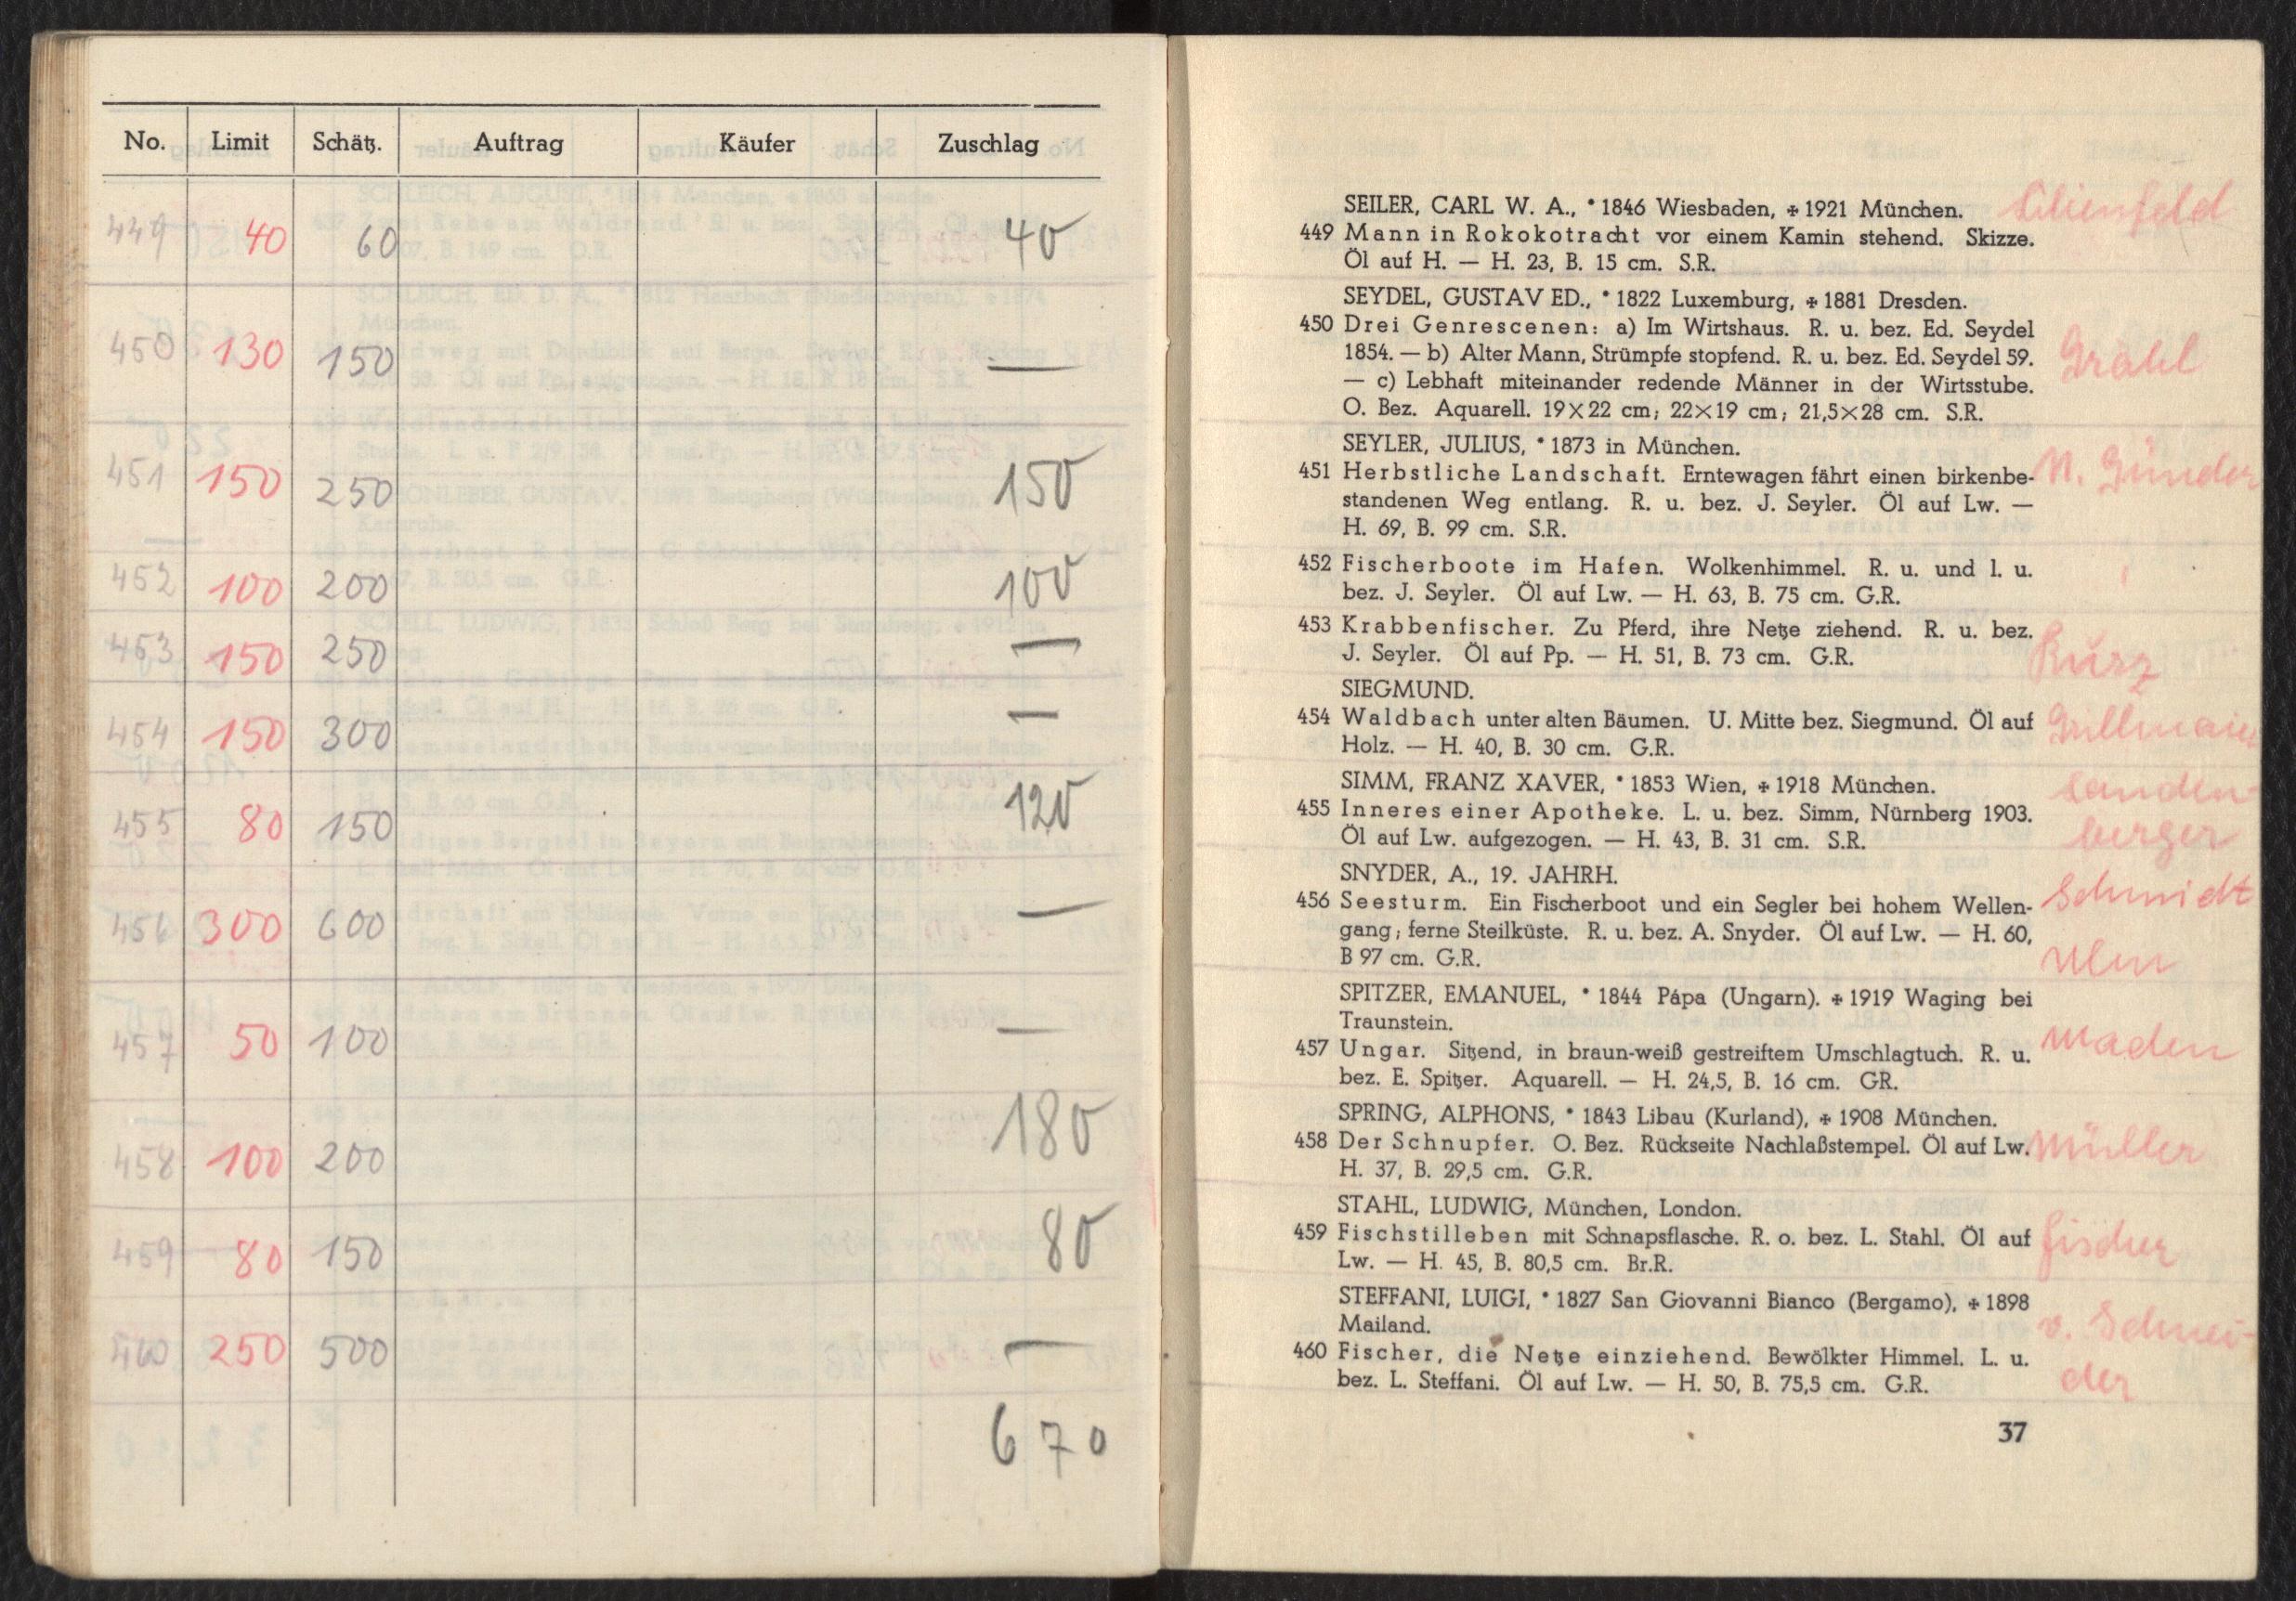 No. Limit Schätz. Auftrag Käufer Zuschlag
449 40 60 40
450 130 150 —
451 150 250 150
452 100 200 100
453 150 250 —
454 150 300 —
455 80 150 120
456 300 600 —
457 50 100 —
458 100 200 180
459 80 150 80
460 250 500 —
670
SEILER, CARL W. A., * 1846 Wiesbaden, ✠ 1921 München. Lilienfeld
449 Mann in Rokokotracht vor einem Kamin stehend. Skizze.
Öl auf H. — H. 23, B. 15 cm. S.R.
SEYDEL, GUSTAV ED., * 1822 Luxemburg, ✠ 1881 Dresden.
450 Drei Genrescenen: a) Im Wirtshaus. R. u. bez. Ed. Seydel
1854. — b) Alter Mann, Strümpfe stopfend. R. u. bez. Ed. Seydel 59. Grahl
— c) Lebhaft miteinander redende Männer in der Wirtsstube.
O. Bez. Aquarell. 19×22 cm; 22×19 cm; 21,5×28 cm. S.R.
SEYLER, JULIUS, * 1873 in München.
451 Herbstliche Landschaft. Erntewagen fährt einen birkenbe- N. Günder
standenen Weg entlang. R. u. bez. J. Seyler. Öl auf Lw. —
H. 69, B. 99 cm. S.R.
452 Fischerboote im Hafen. Wolkenhimmel. R. u. und l. u.
bez. J. Seyler. Öl auf Lw. — H. 63, B. 75 cm. G.R.
453 Krabbenfischer. Zu Pferd, ihre Netze ziehend. R. u. bez.
J. Seyler. Öl auf Pp. — H. 51, B. 73 cm. G.R. Kurz
SIEGMUND.
454 Waldbach unter alten Bäumen. U. Mitte bez. Siegmund. Öl auf
Holz. — H. 40, B. 30 cm. G.R.
SIMM, FRANZ XAVER, * 1853 Wien, ✠ 1918 München. Landen-
455 Inneres einer Apotheke. L. u. bez. Simm, Nürnberg 1903. berger
Öl auf Lw. aufgezogen. — H. 43, B. 31 cm. S.R.
SNYDER, A., 19. JAHRH.
456 Seesturm. Ein Fischerboot und ein Segler bei hohem Wellen- Schmidt
gang; ferne Steilküste. R. u. bez. A. Snyder. Öl auf Lw. — H. 60,
B 97 cm. G.R. Ulm
SPITZER, EMANUEL, * 1844 Pápa (Ungarn). ✠ 1919 Waging bei
Traunstein.
457 Ungar. Sitzend, in braun-weiß gestreiftem Umschlagtuch. R. u. Maden
bez. E. Spitzer. Aquarell. — H. 24,5, B. 16 cm. GR.
SPRING, ALPHONS, * 1843 Libau (Kurland), ✠ 1908 München.
458 Der Schnupfer. O. Bez. Rückseite Nachlaßstempel. Öl auf Lw. Müller
H. 37, B. 29,5 cm. G.R.
STAHL, LUDWIG, München, London.
459 Fischstilleben mit Schnapsflasche. R. o. bez. L. Stahl. Öl auf Fischer
Lw. — H. 45, B. 80,5 cm. Br.R.
STEFFANI, LUIGI, * 1827 San Giovanni Bianco (Bergamo), ✠ 1898
Mailand. v. Schnei-
460 Fischer, die Netze einziehend. Bewölkter Himmel. L. u.
bez. L. Steffani. Öl auf Lw. — H. 50, B. 75,5 cm. G.R. der
37